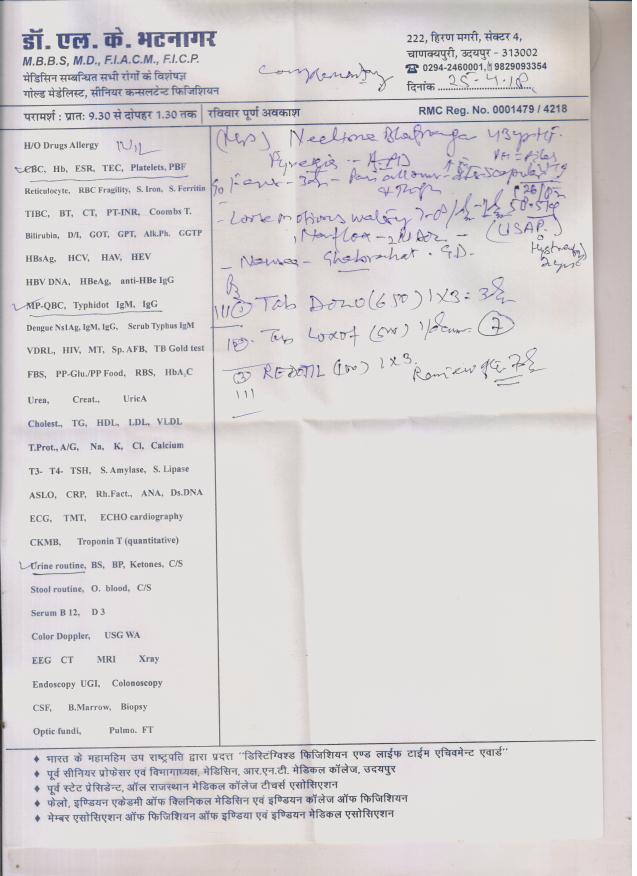 डॉ. एल. के. भटनागर
M.B.B.S, M.D., F.I.A.C.M., F.I.C.P.
मेडिसिन सम्बन्धित सभी रोगों के विशेषज्ञ
गोल्ड मेडेलिस्ट, सीनियर कनसलटेन्ट फिजिशियन
222, हिरण मगरी, सेक्टर 4,
चाणक्यपुरी, उदयपुर - 313002
☎ 0294-2460001, 9829093354
दिनांक
परामर्श : प्रात: 9.30 से दोपहर 1.30 तक | रविवार पूर्ण अवकाश
RMC Reg. No. 0001479 / 4218
H/O Drugs Allergy Nil
CBC, Hb, ESR, TEC, Platelets, PBF
Reticulocyte, RBC Fragility, S. Iron, S. Ferritin
TIBC, BT, CT, PT-INR, Coombs T.
Bilirubin, D/I, GOT, GPT, Alk.Ph. GGTP
HBsAg, HCV, HAV, HEV
HBV DNA, HBeAg, anti-HBe IgG
MP-QBC, Typhidot IgM, IgG
Dengue Ns1Ag, IgM, IgG, Scrub Typhus IgM
VDRL, HIV, MT, Sp. AFB, TB Gold test
FBS, PP-Glu./PP Food, RBS, HbA1C
Urea, Creat., UricA
Cholest., TG, HDL, LDL, VLDL
T.Prot., A/G, Na, K, Cl, Calcium
T3- T4- TSH, S. Amylase, S. Lipase
ASLO, CRP, Rh.Fact., ANA, Ds.DNA
ECG, TMT, ECHO cardiography
CKMB, Troponin T (quantitative)
Urine routine, BS, BP, Ketones, C/S
Stool routine, O. blood, C/S
Serum B 12, D 3
Color Doppler, USG WA
EEG CT MRI Xray
Endoscopy UGI, Colonoscopy
CSF, B.Marrow, Biopsy
Optic fundi, Pulmo. FT
- Loose motions watery
- Nausea - Ghabrahat
① Tab Dolo (650) 1x3 =
Tab (500)
③ (100) 1x3
Review
♦ भारत के महामहिम उप राष्ट्रपति द्वारा प्रदत्त "डिस्टिंग्विश्ड फिजिशियन एण्ड लाईफ टाईम एचिवमेन्ट एवार्ड"
♦ पूर्व सीनियर प्रोफेसर एवं विभागाध्यक्ष, मेडिसिन, आर.एन.टी. मेडिकल कॉलेज, उदयपुर
♦ पूर्व स्टेट प्रेसिडेन्ट, ऑल राजस्थान मेडिकल कॉलेज टीचर्स एसोसिएशन
♦ फेलो, इण्डियन एकेडमी ऑफ क्लिनिकल मेडिसिन एवं इण्डियन कॉलेज ऑफ फिजिशियन
♦ मेम्बर एसोसिएशन ऑफ फिजिशियन ऑफ इण्डिया एवं इण्डियन मेडिकल एसोसिएशन